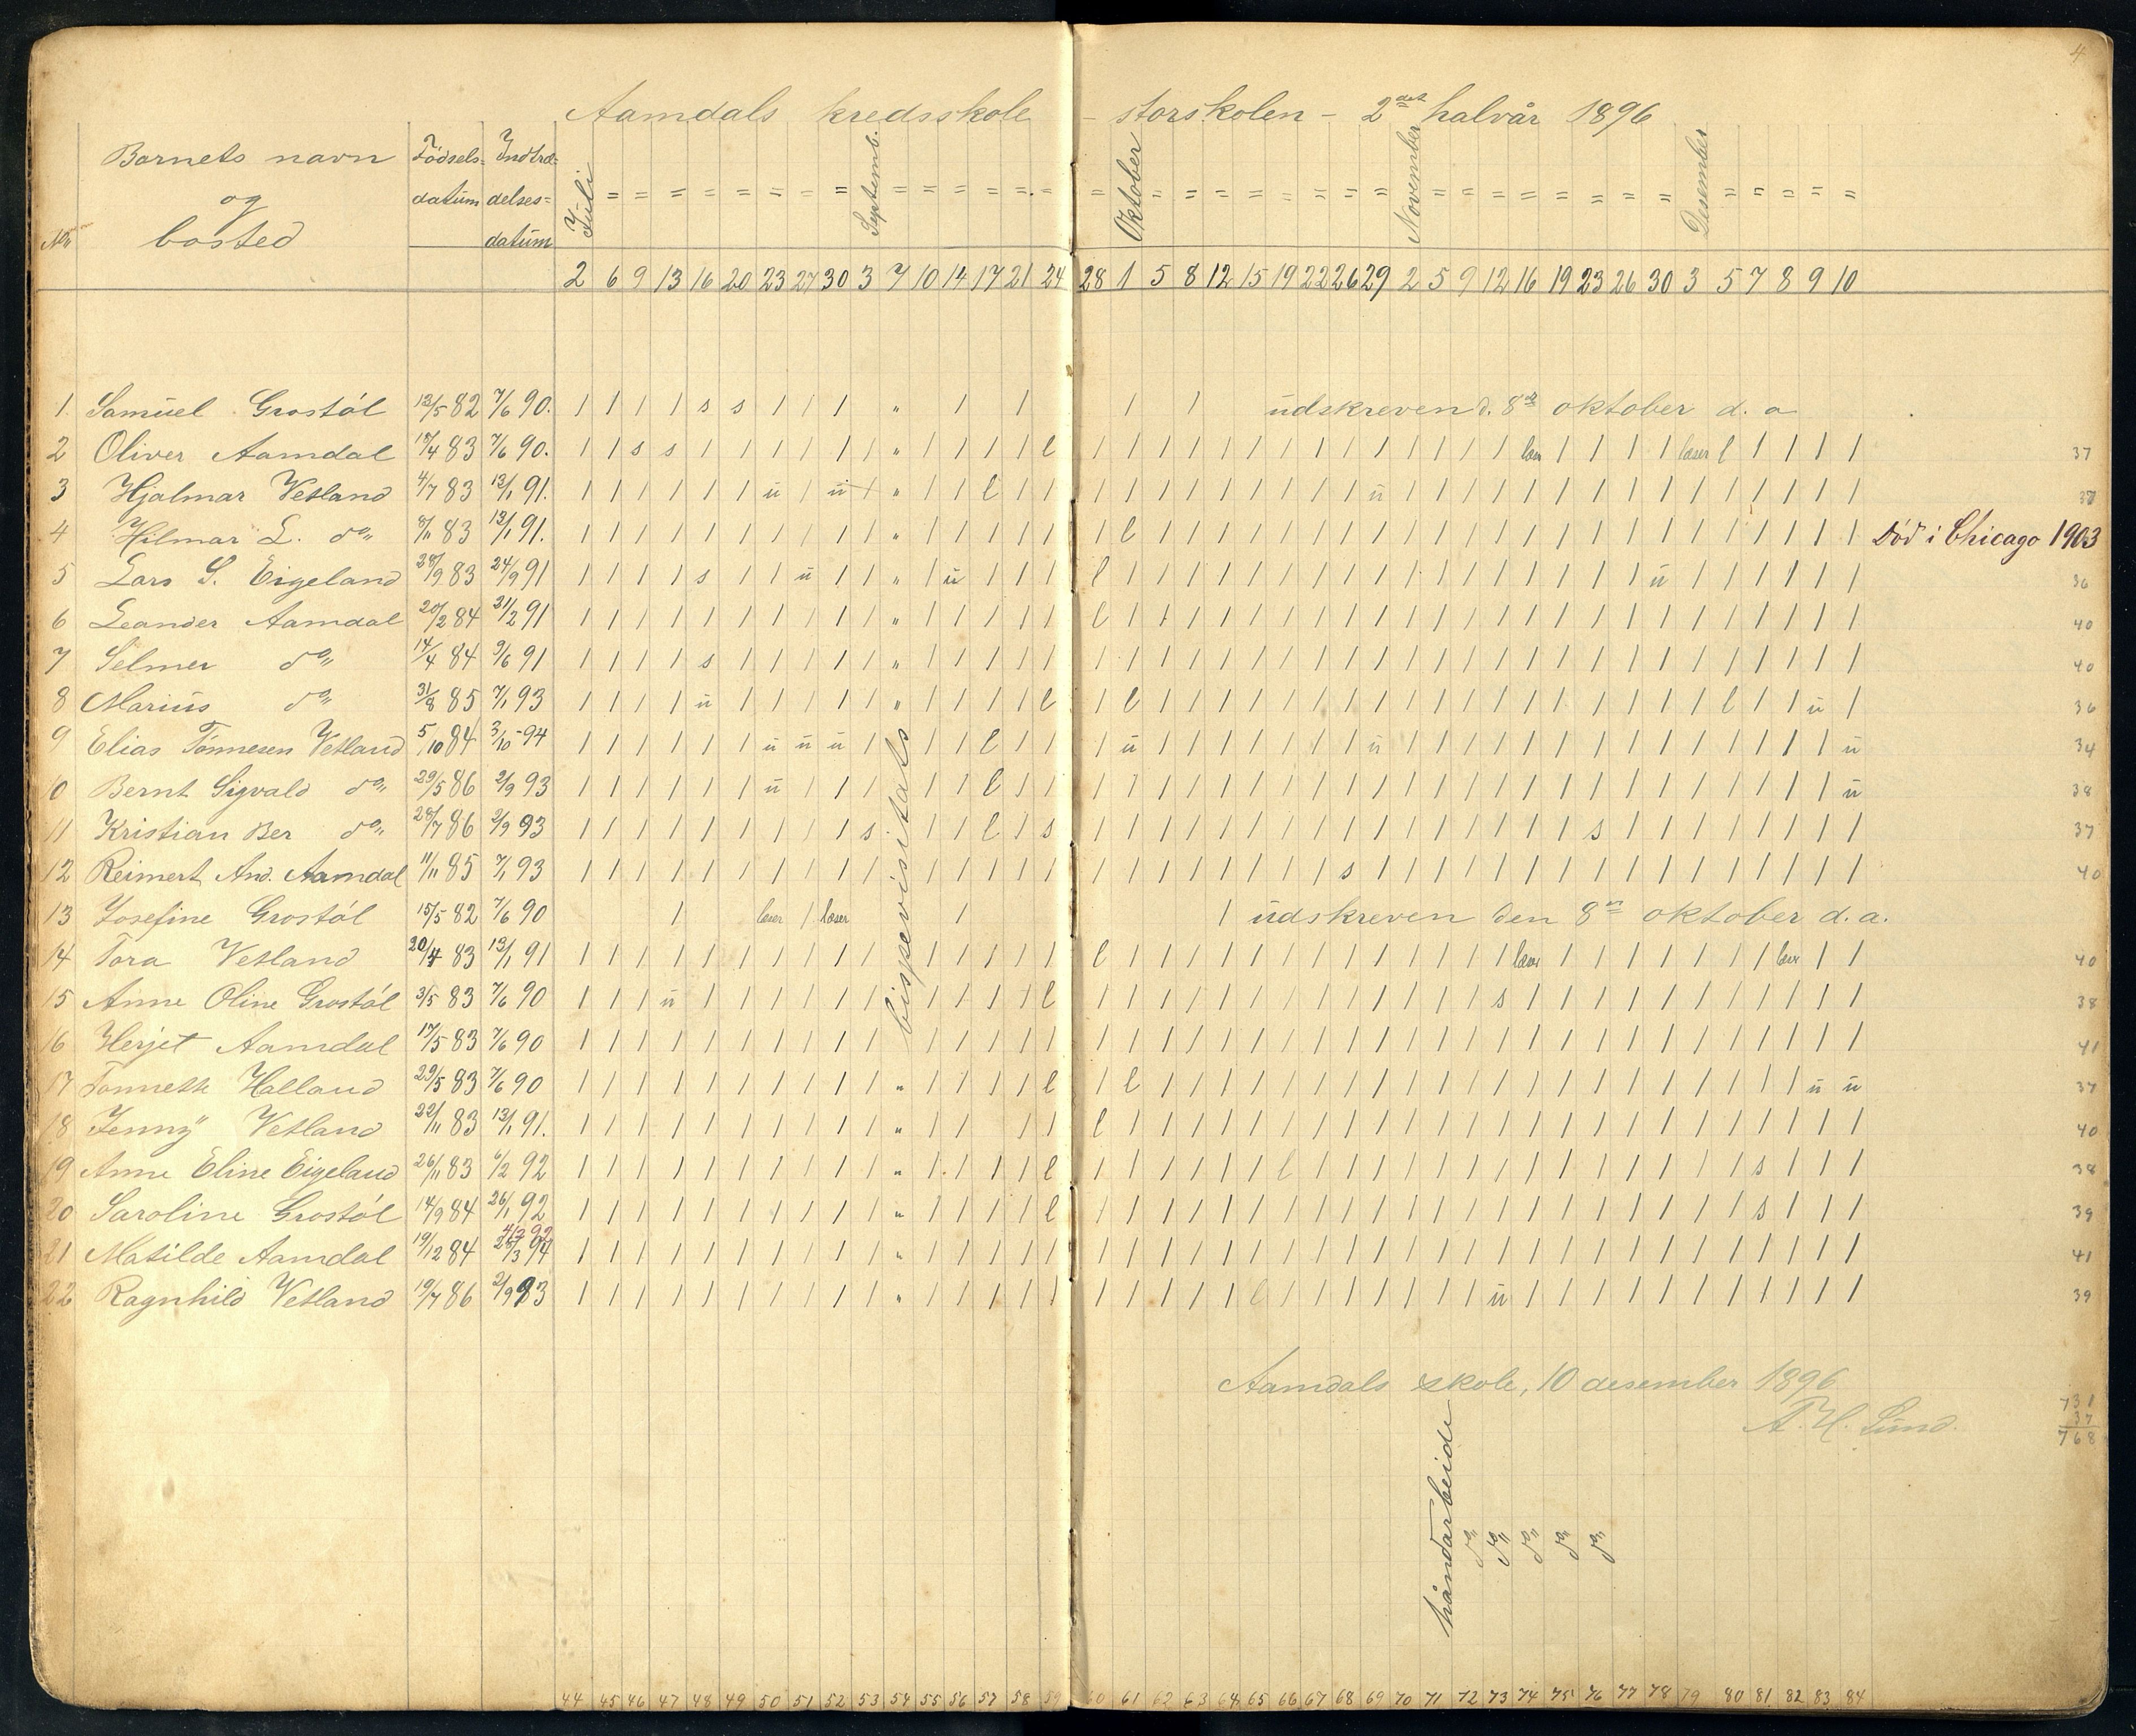 4
Aamdals kredsskole - storskolen - 2det halvår 1896
No Barnets navn og bosted Fødsels-datum Indtrædelses-datum Juli = = = = = = = = Septemb. = = = = = = = Oktober = = = = = = = = November = = = = = = = = Desember = = = = =
2 6 9 13 16 20 23 27 30 3 7 10 14 17 21 24 28 1 5 8 12 15 19 22 26 29 2 5 9 12 16 19 23 26 30 3 5 7 8 9 10
1. Samuel Grostøl 13/5 82 7/6 90. / / / / s s / / / " / / / / udskreven d. 8de oktober d. a
2 Oliver Aamdal 18/4 83 7/6 90. / / s s / / / / / / " / / / / l / / / / / / / / / / / / / / læser / / / / læser l / / / / 37
3 Hjalmar Vetland 4/7 83 13/1 91. / / / / / / ü / ü / " / / l / / / / / / / / / / / ü / / / / / / / / / / / / / / / 37
4 Hilmar L. do 8/11 83 13/1 91. / / / / / / / / / / " / / / / / / l / / / / / / / / / / / / / / / / / / / / / / / Død i Chicago 1903
5 Lars S. Eigeland 28/9 83 24/9 91 / / / / s / / ü / / " / ü / / / l / / / / / / / / / / / / / / / / / ü / / / / / / 36
6 Leander Aamdal 20/2 84 21/2 91 / / / / / / / / / / " / / / / / l / / / / / / / / / / / / / / / / / / / / / / / / 40
7 Selmer do 14/4 84 9/6 91 / / / / s / / / / / " / / / / / / / / / / / / / / / / / / / / / / / / / / / / / / 40
8 Marius do 31/8 85 7/1 93 / / / / ü / / / / / " / / / / l / l / / / / / / / / / / / / / / / / / / l / / ü / 36
9 Elias Tønnesen Vetland 5/10 84 3/10 - 94 / / / / / / ü ü ü / / / l / / / ü / / / / / / / ü / / / / / / / / / / / / / / ü 34
10 Bernt Sigvald do 29/5 86 2/9 93 / / / / / / ü / / / / / l / / / / / / / / / / / / / / / / / / / / / / / / / / / ü 38
11 Kristian Ber do 28/7 86 2/9 93 / / / / / / / / / s / / l / s / / / / / / / / / / / / / / / / s / / / / / / / / 37
12 Reimert And. Aamdal 11/11 85 7/1 93 / / / / / / / / / / / / / / / / / / / / / / / s / / / / / / / / / / / / / / / / 40
13 Josefine Grostøl 15/5 82 7/6 90 / læser / læser / / udskreven den 8de oktober d. a.
14 Tora Vetland 20/4 83 13/1 91 / / / / / / / / / / / / / / / l / / / / / / / / / / / / / læser / / / / / / / læser / / 40
15 Anne Oline Grostøl 3/5 83 7/6 90 / / / ü / / / / / / / / / / l / / / / / / / / / / / / / s / / / / / / / / / / / 38
16 Herjet Aamdal 17/5 83 7/6 90 / / / / / / / / / / / / / / / / / / / / / / / / / / / / / / / / / / / / / / / / 41
17 Tonnette Halland 29/5 83 7/6 90 / / / / / / / / / / " / / / / l / l / / / / / / / / / / / / / / / / / / / / / ü ü 37
18 Jenny Vetland 22/11 83 13/1 91. / / / / / / / / / / " / / / / l / / / / / / / / / / / / / / / / / / / / / / / / 40
19 Anne Eline Eigeland 26/11 83 6/2 92 / / / / / / / / / / " / / / / l / / / / / / l / / / / / / / / / / / / / / s / / / 38
20 Saroline Grostøl 14/9 84 26/1 92 / / / / / / / / / / " / / / / l / / / / / / / / / / / / / / / / / / / / / s / / / 39
4/2 92
21 Matilde Aamdal 19/12 84 28/3 94 / / / / / / / / / / " / / / / / / / / / / / / / / / / / / / / / / / / / / / / / / 41
22 Ragnhild Vetland 19/7 86 2/9 93 / / / / / / / / / / " / / / / / / / / / / l / / / / / / / ü / / / / / / / / / / / 39
bispevisitats
Aamdals skole, 10 desember 1896
A. H. Lund.
731
37
768
håndarbeide do do do do do
44 45 46 47 48 49 50 51 52 53 54 55 56 57 58 59 60 61 62 63 64 65 66 67 68 69 70 71 72 73 74 75 76 77 78 79 80 81 82 83 84